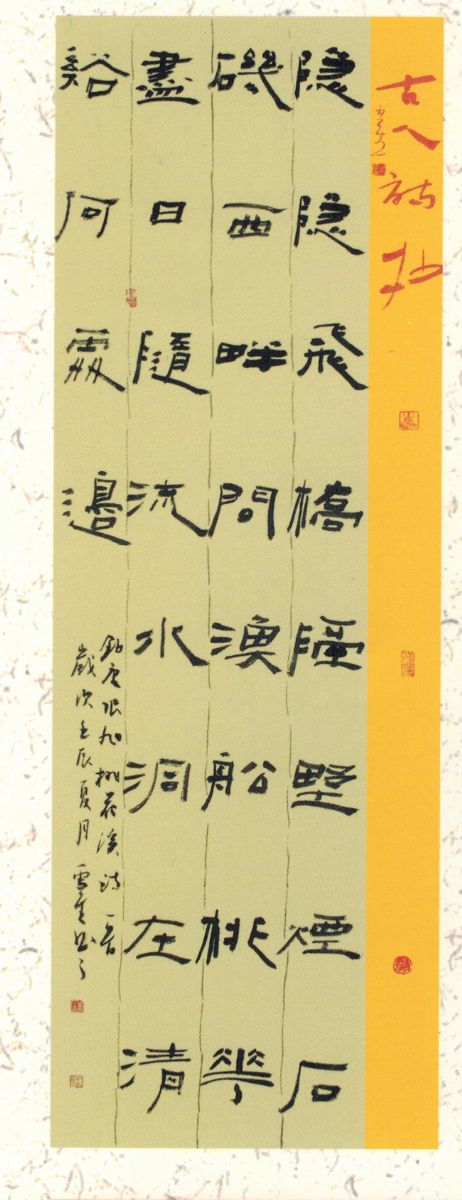 古人詩抄
隱隱飛橋隔野煙石
磯西畔問漁船桃花
盡日隨流水洞在清
谿何處邊
錄唐張旭桃花溪詩一首
歲次壬辰夏月